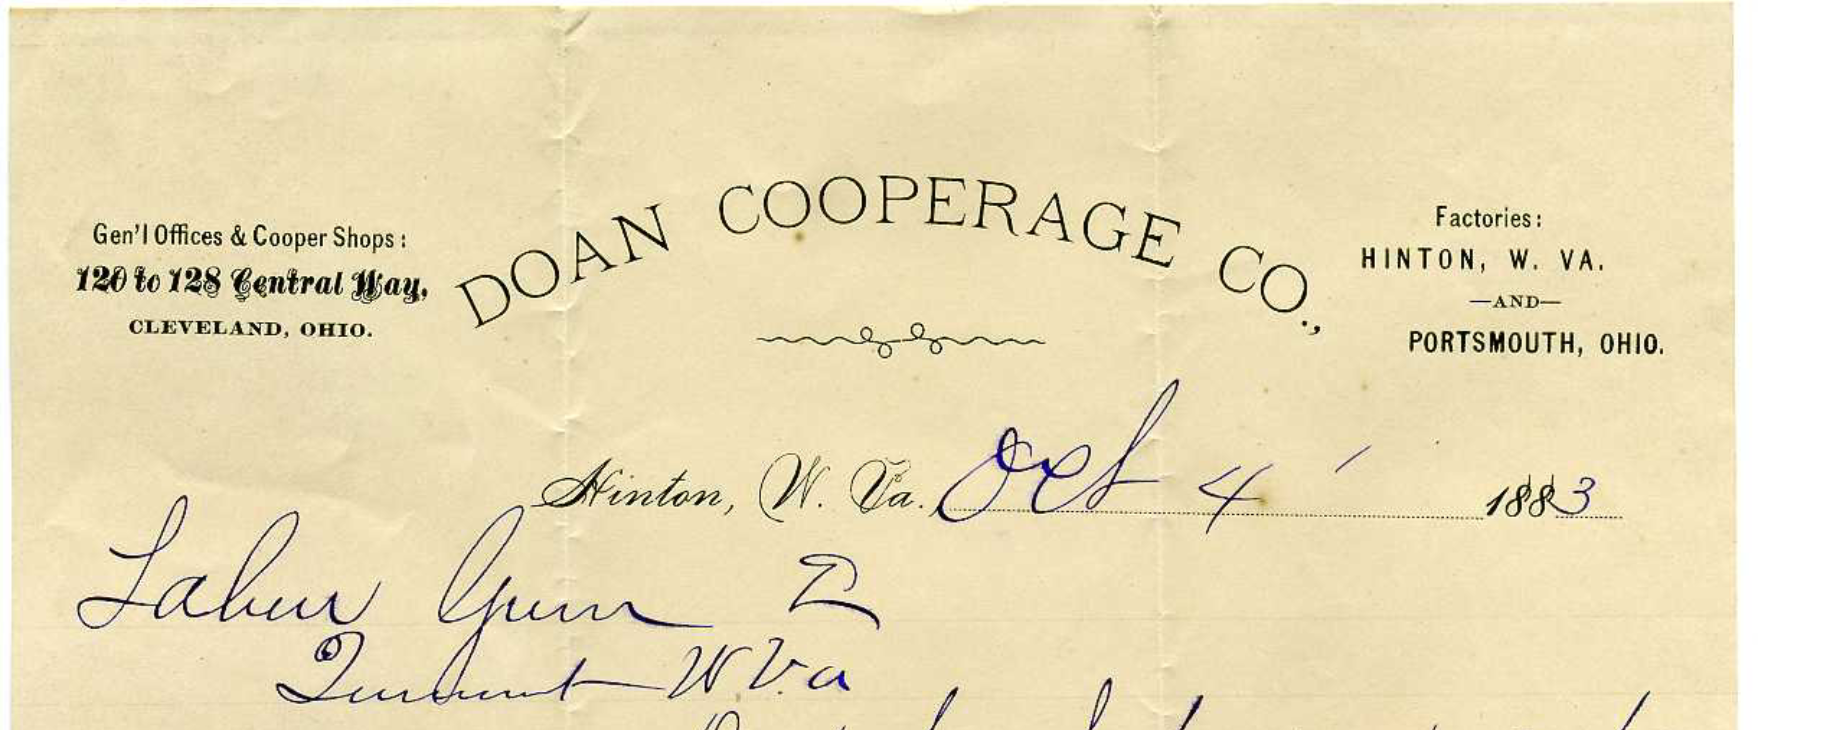 DOAN COOPERAGE CO.,
Gen'l Offices & Cooper Shops:
120 to 128 Central Way,
CLEVELAND, OHIO.
Factories:
HINTON, W. VA.
—AND—
PORTSMOUTH, OHIO.
Hinton, W. Va. Oct 4 1883
W.Va